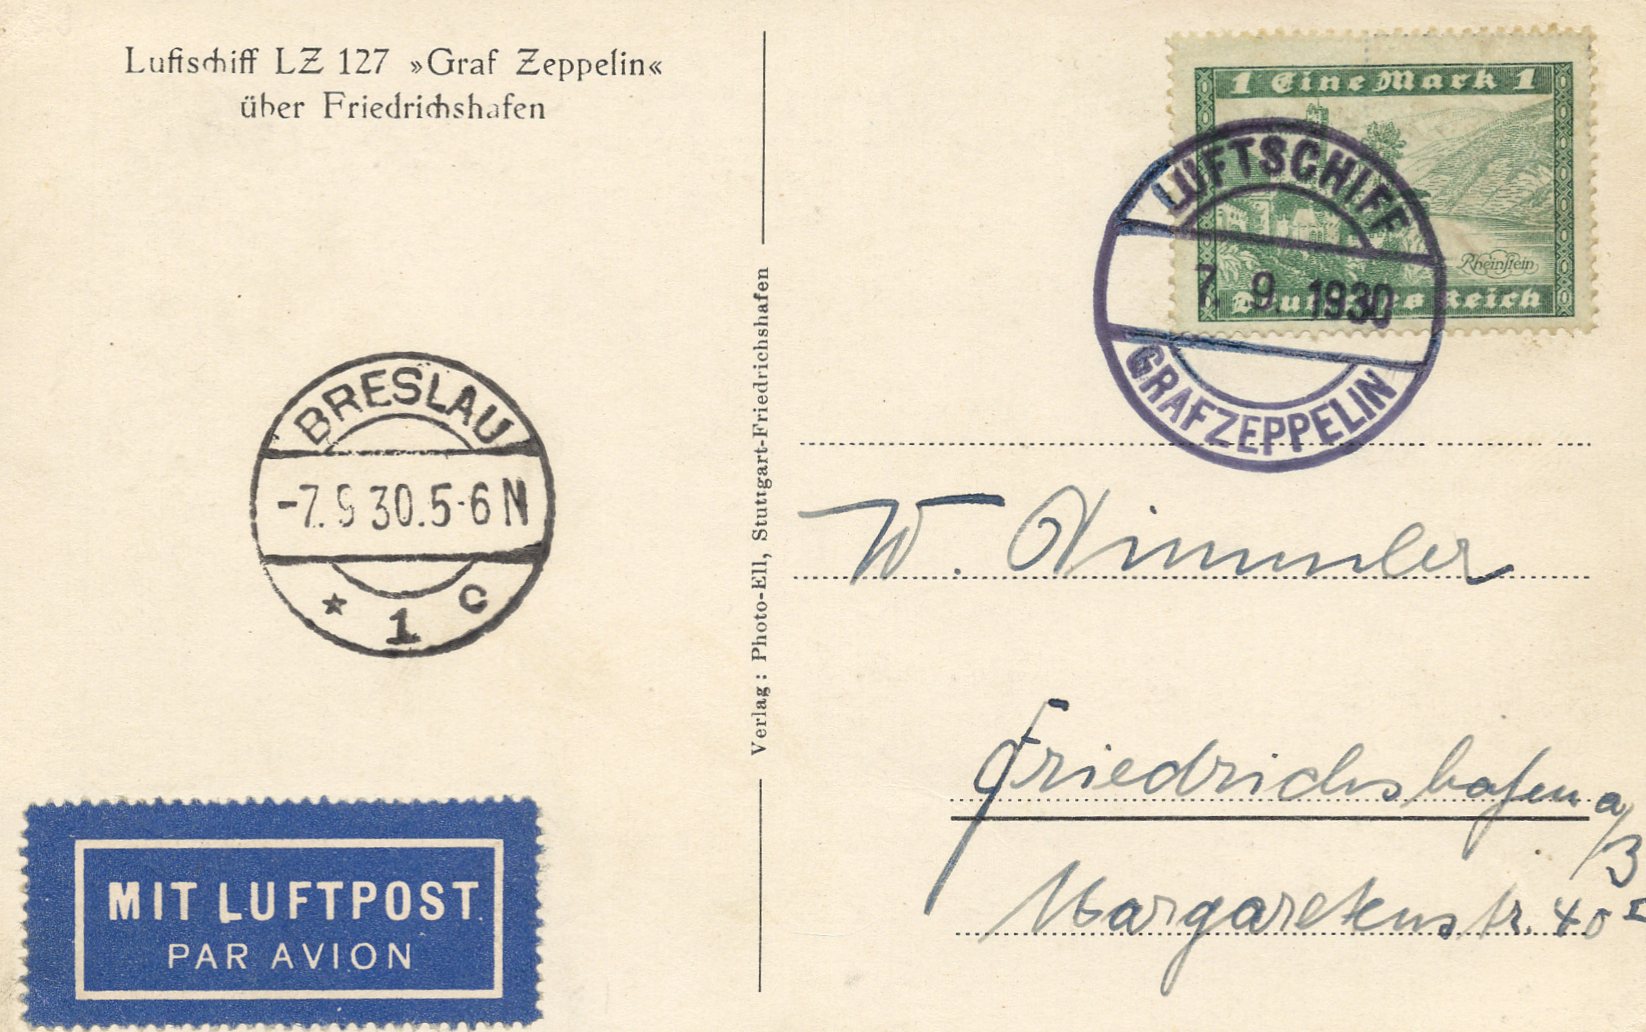 Luftschiff LZ 127 »Graf Zeppelin«
über Friedrichshafen
1 Eine Mark 1
Rheinstein
Deutsches Reich
LUFTSCHIFF
7. 9. 1930
GRAF ZEPPELIN
BRESLAU
-7.9 30.5-6 N
* 1 c
Verlag: Photo-Ell, Stuttgart-Friedrichshafen
W. Nimmler
Friedrichshafen a/B
Margaretenstr. 40 I
MIT LUFTPOST
PAR AVION